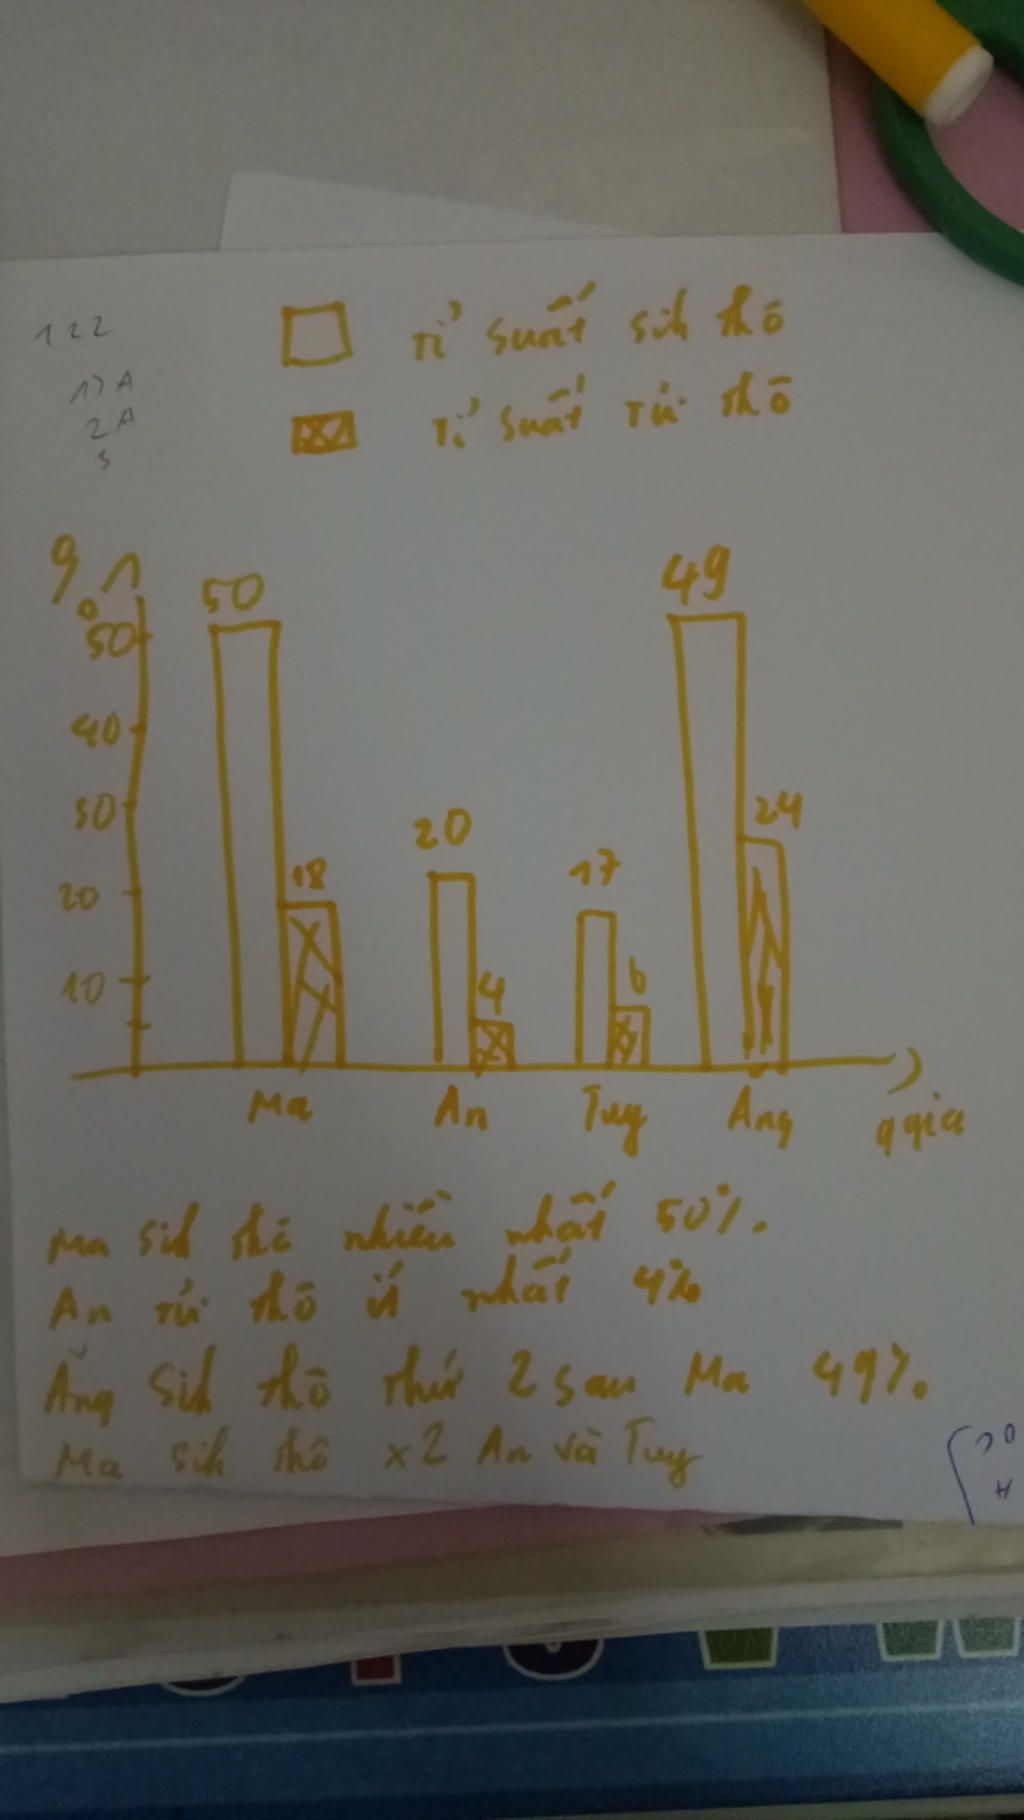 122
1) A
2 A
3
Tỉ suất sih thô
Tỉ suất tử thô
%o
50
40
30
20
10
50
18
20
4
17
6
49
24
Ma
An
Tuy
Ang
qgia
Ma sih thô nhiều nhất 50%.
An tử thô ít nhất 4%
Ăng sih thô thứ 2 sau Ma 49%.
Ma sih thô x2 An và Tuy